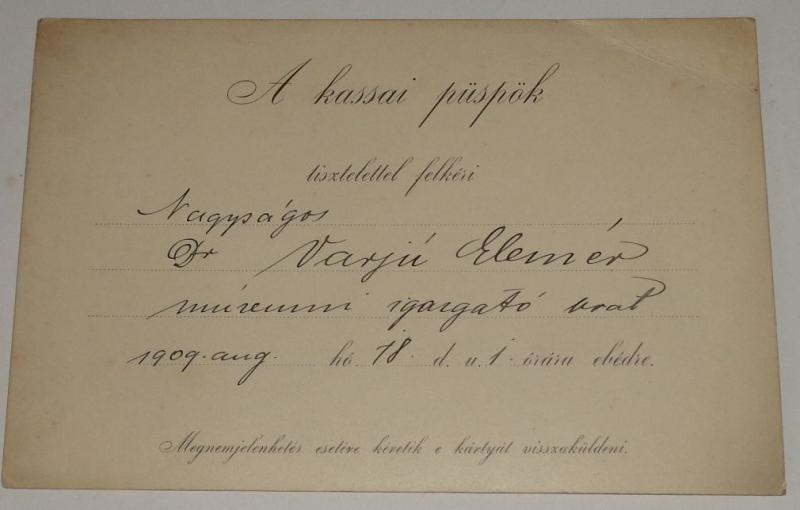 A kassai püspök
tisztelettel felkéri
Nagyságos
Dr Varjú Elemér
múzeumi igazgató urat
1909. aug. hó 18. d. u. 1. órára ebédre.
Megnemjelenhetés esetére kéretik e kártyát visszaküldeni.